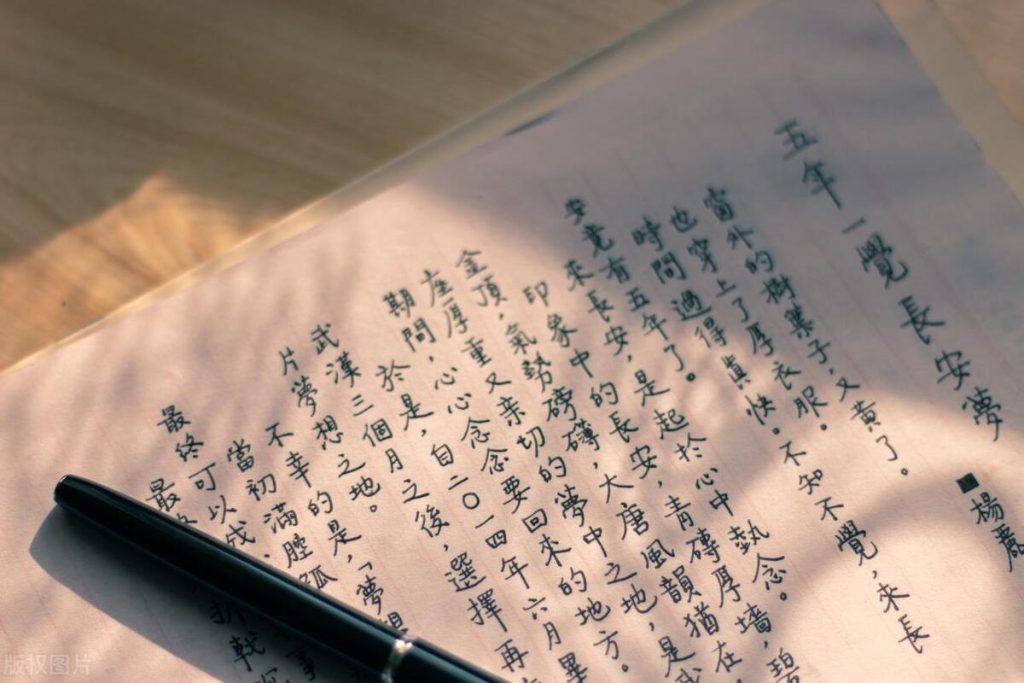 五年一覺長安夢
■楊
窗外的樹葉子,又黃了。
也穿上了厚衣服。
時間過得真快。不知不覺,來長
安竟有五年了。
來長安,是起於心中熱念。
印象中的長安,青磚厚墻,碧
金頂,氣勢磅礴,大唐風韻猶在
座厚重又亲切的夢中之地,是
期間,心心念念要回來的地方。
於是,自二〇一四年六月畢
武漢三個月之後,選擇再
片夢想之地。
不幸的是,「夢想
當初滿腔
最終可以成
最
折戟
事
版权图片